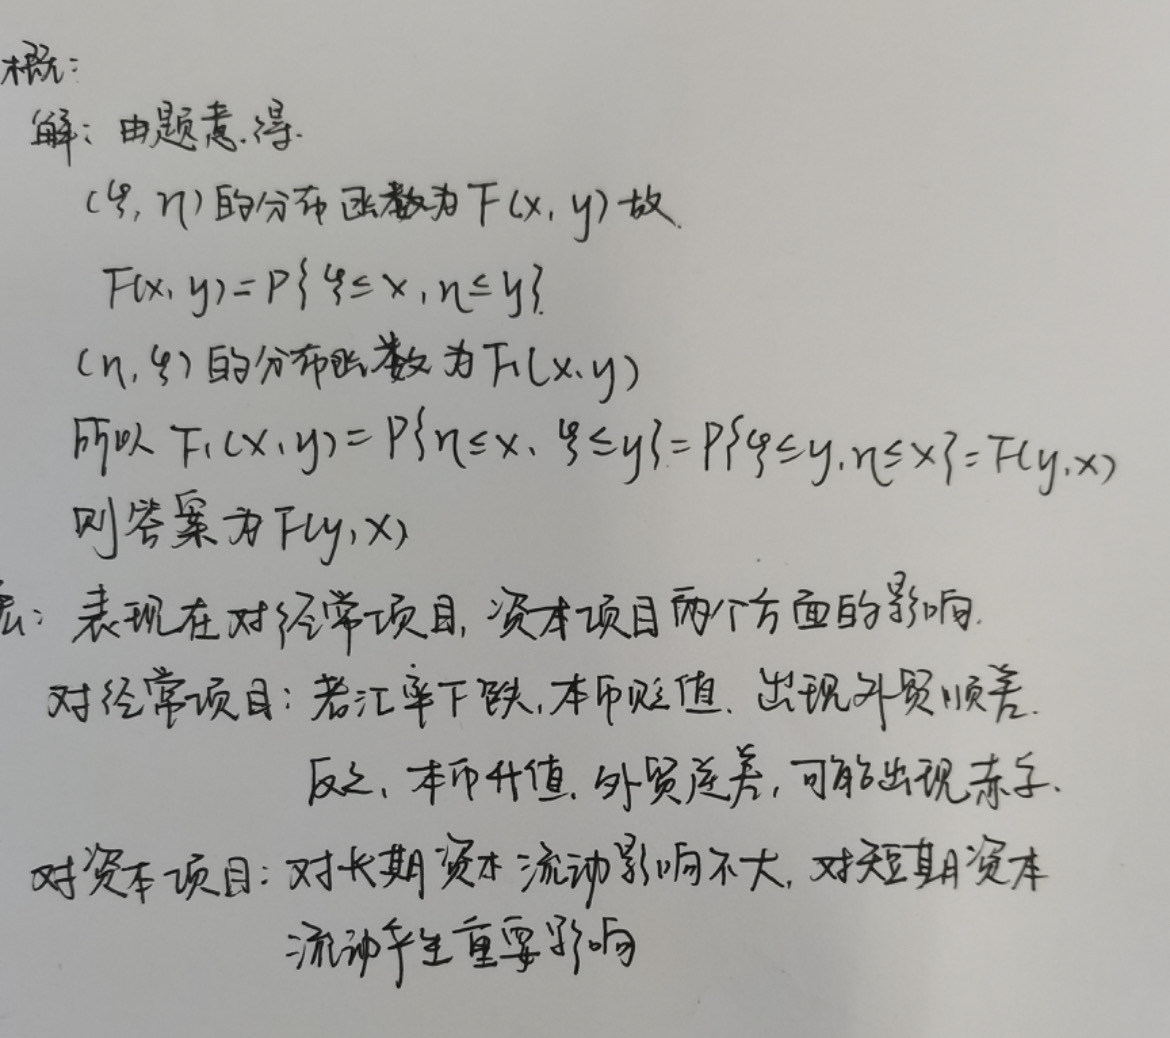 概:
解: 由题意.得.
(ξ, η)的分布函数为F(x, y)故
F(x, y)=P{ξ≤x, η≤y}.
(η, ξ)的分布函数为F₁(x, y)
所以 F₁(x, y)=P{η≤x, ξ≤y}=P{ξ≤y, η≤x}=F(y, x)
则答案为F(y, x)
: 表现在对经常项目, 资本项目两个方面的影响.
对经常项目: 若汇率下跌, 本币贬值, 出现外贸顺差.
反之, 本币升值, 外贸逆差, 可能出现赤字.
对资本项目: 对长期资本流动影响不大, 对短期资本
流动产生重要影响